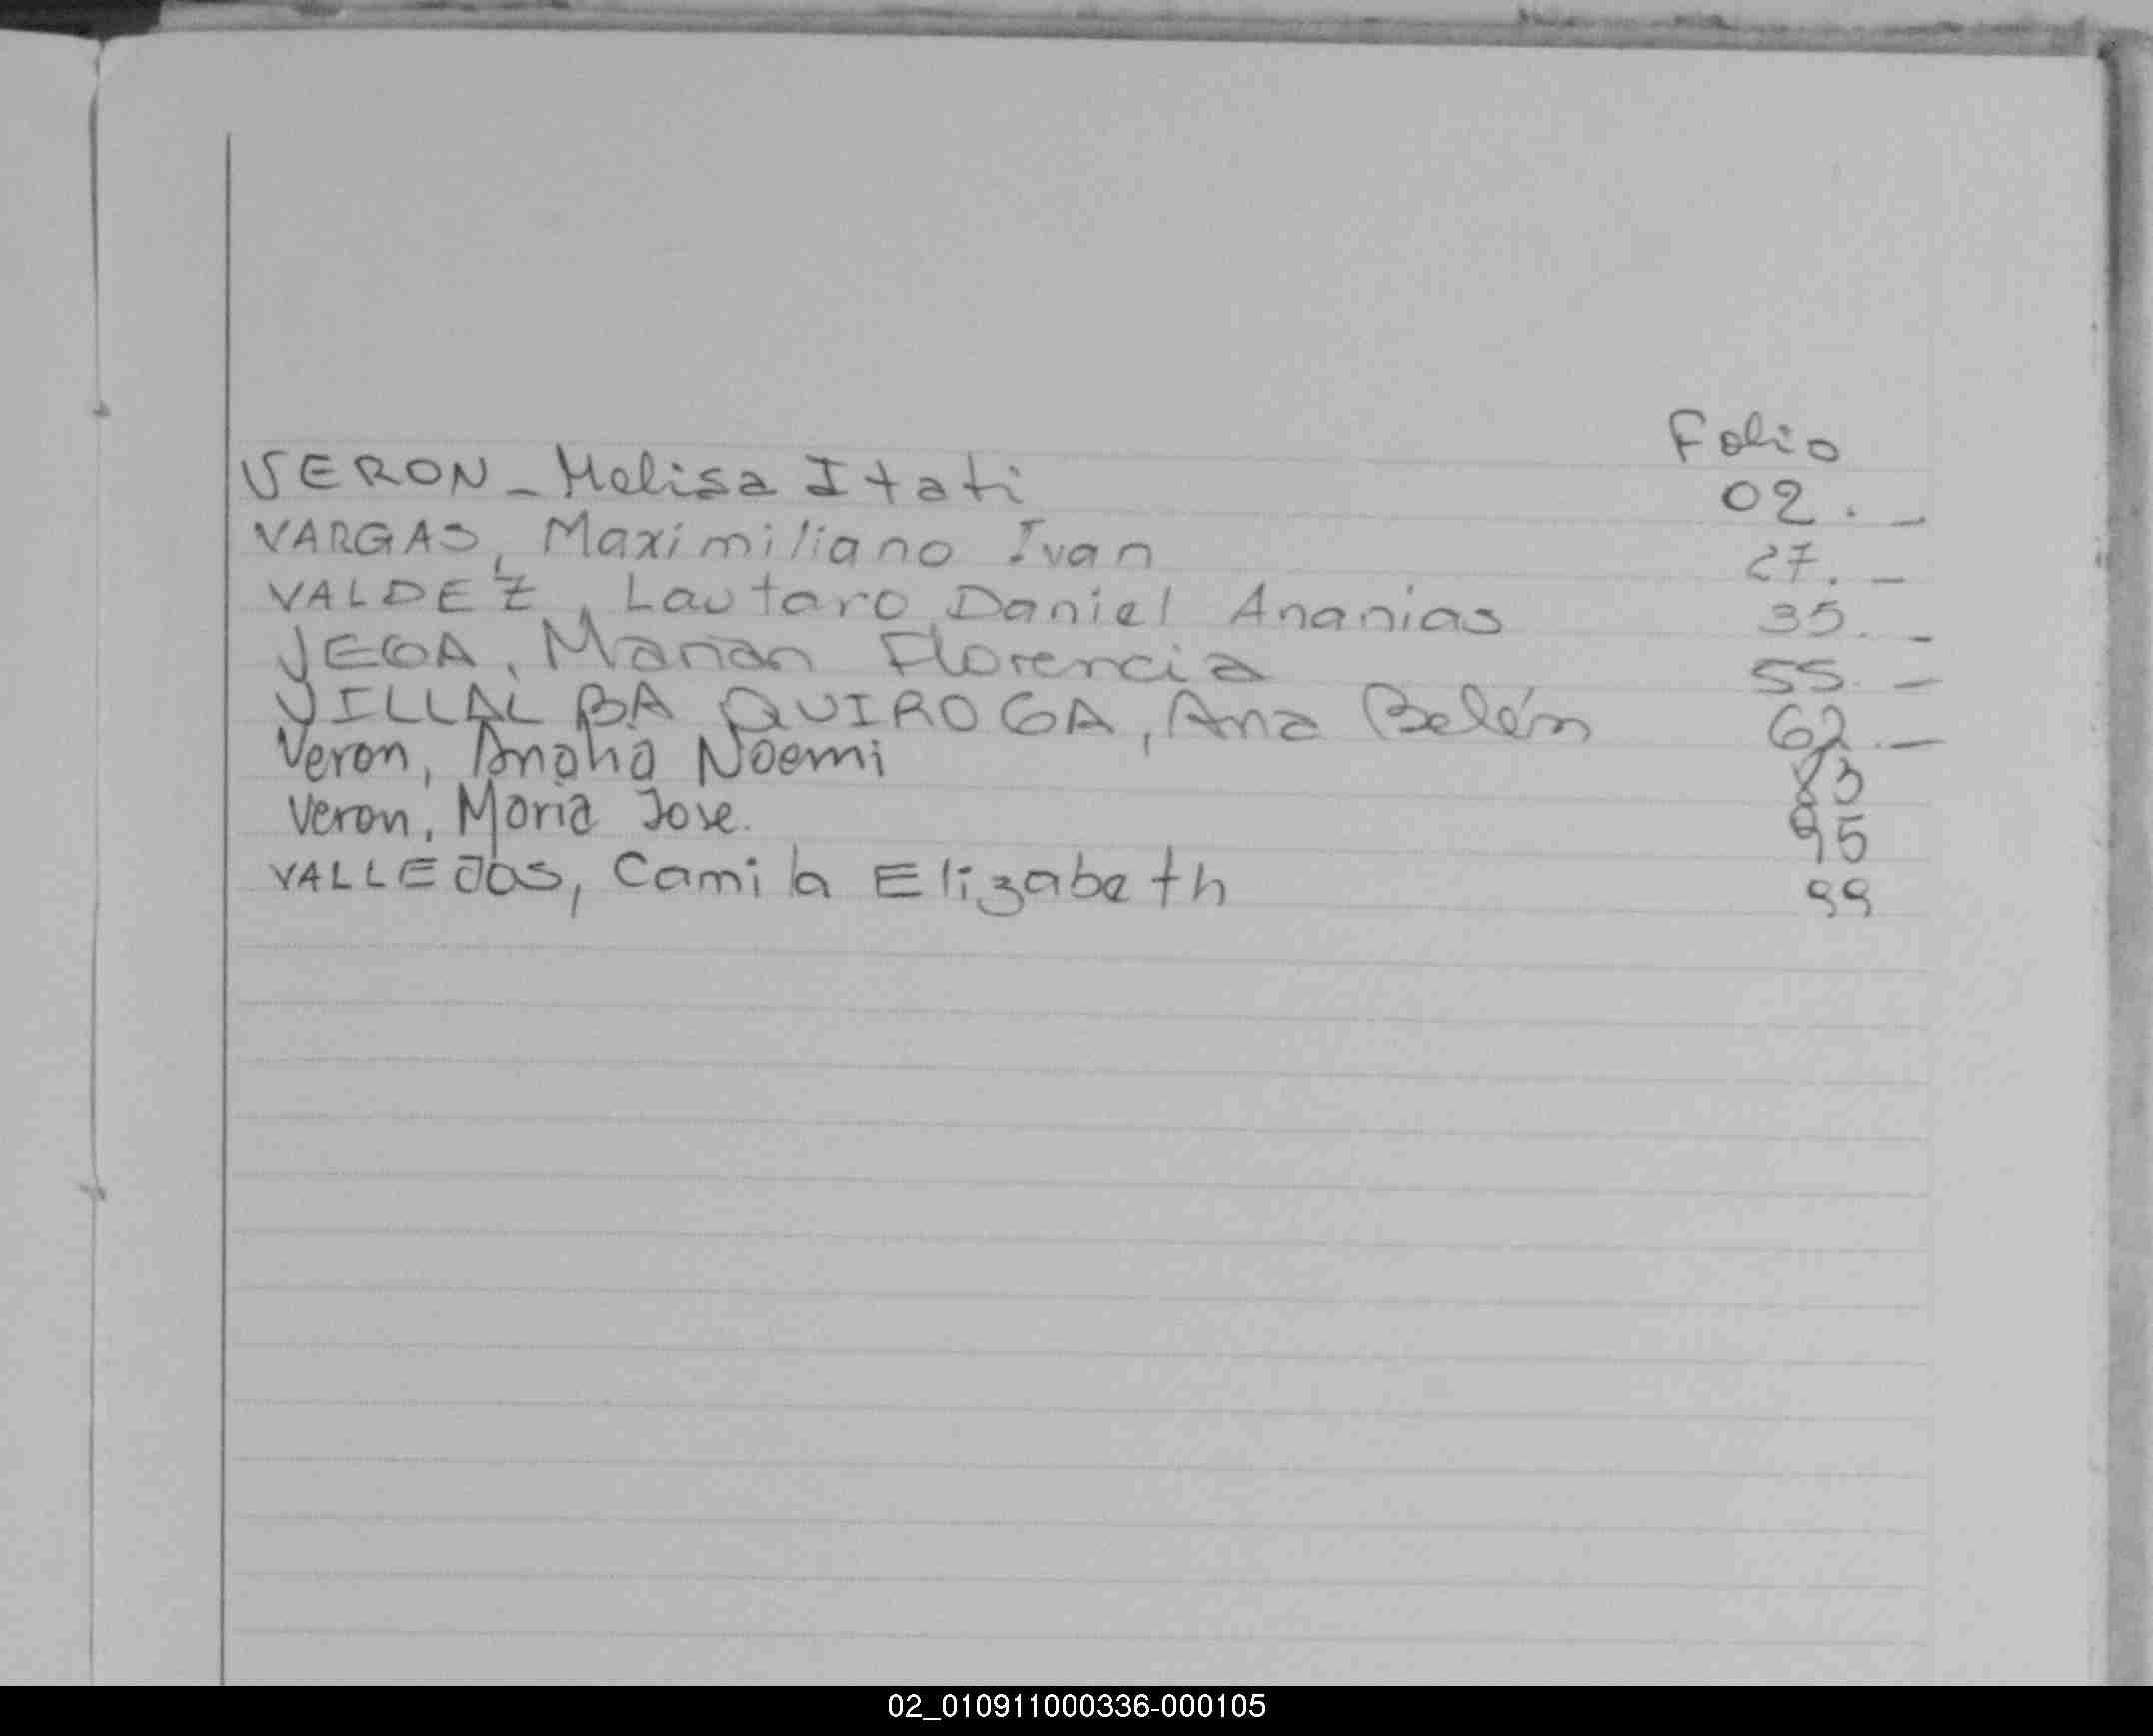 Folio
VERON - Melisa Itati 02. -
VARGAS, Maximiliano Ivan 27. -
VALDEZ, Lautaro Daniel Ananias 35. -
VEGA, Marian Florencia 55. -
VILLALBA QUIROGA, Ana Belén 62. -
Veron, Analia Noemi 83
Veron, Maria Jose. 95
VALLEJOS, Camila Elizabeth 99
02_010911000336-000105